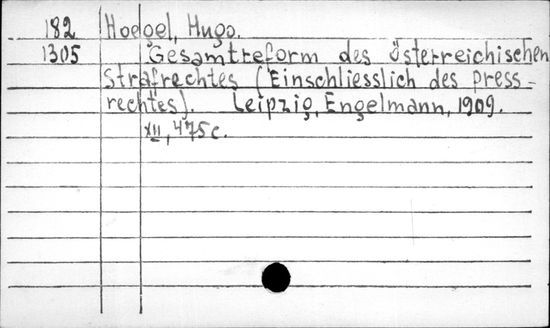 182 Hoegel, Hugo.
1305 Gesamtreform des österreichischen
Strafrechtes (Einschliesslich des press-
rechtes). Leipzig, Engelmann, 1909.
XII, 475 c.